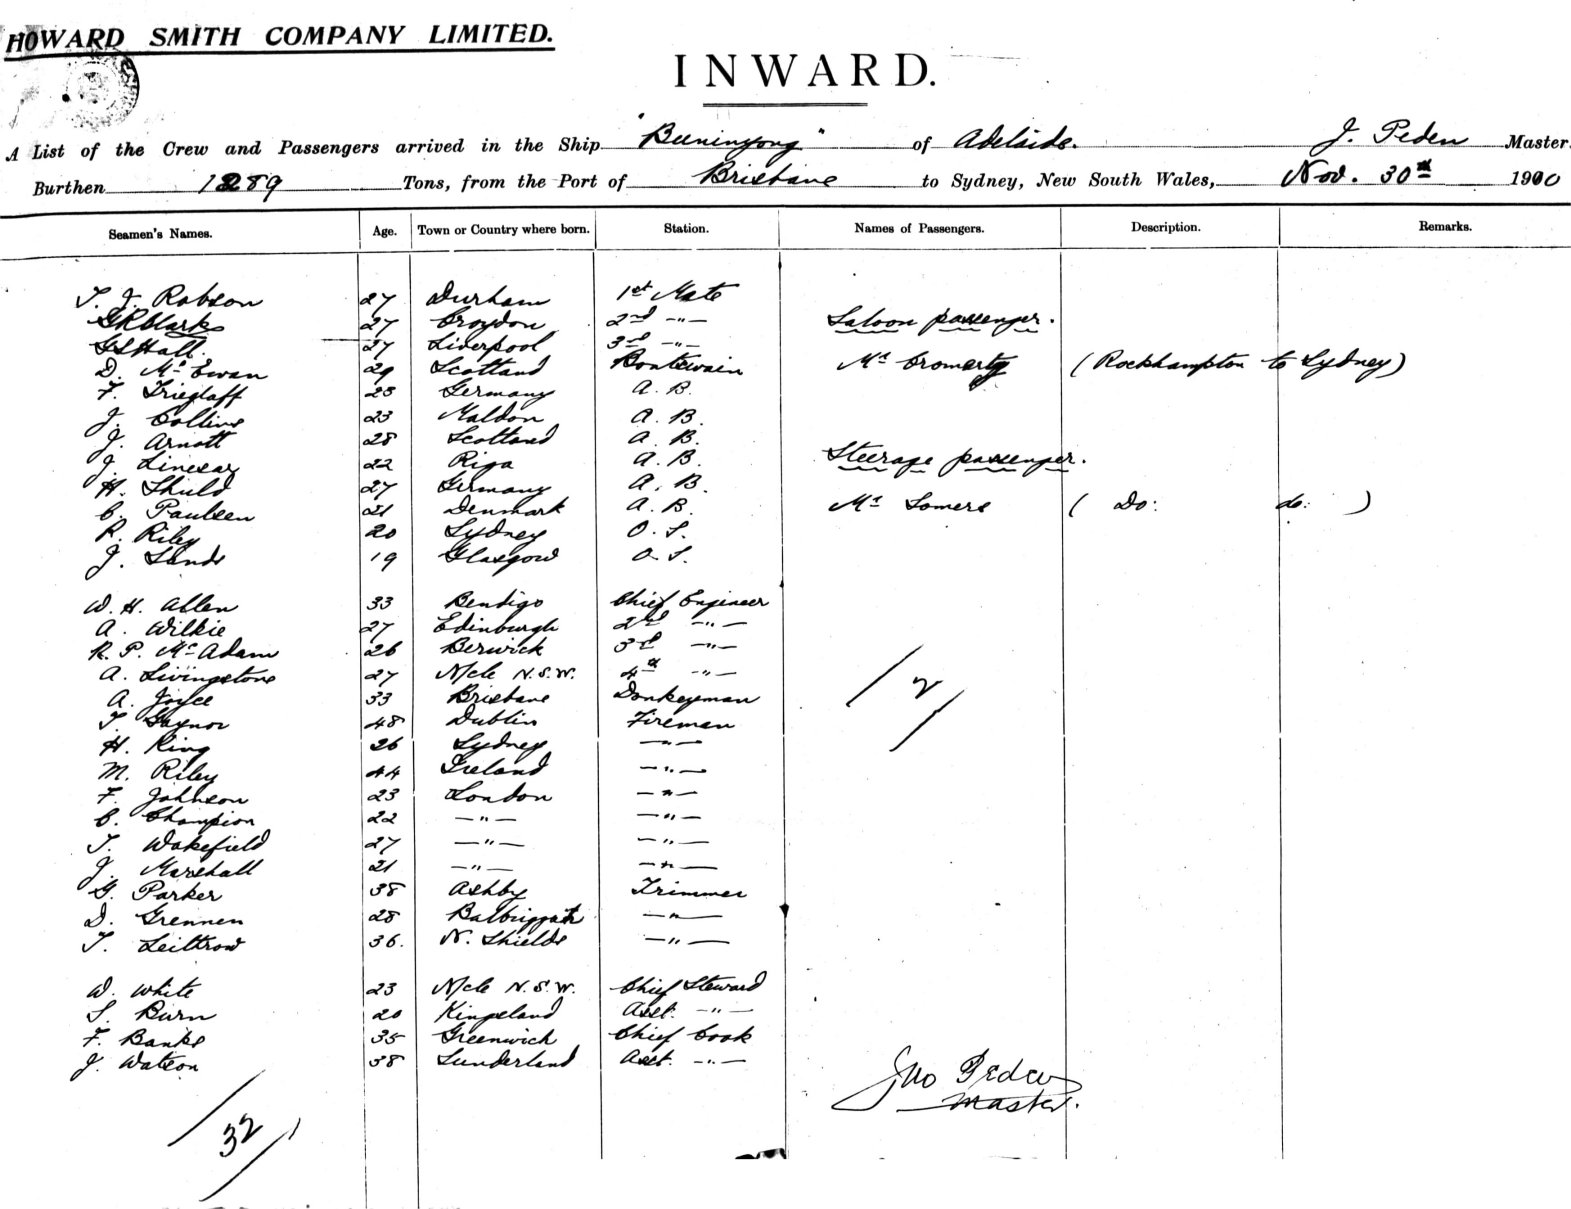 HOWARD SMITH COMPANY LIMITED.
INWARD.
A List of the Crew and Passengers arrived in the Ship "Buninyong" of Adelaide. J. Peden Master
Burthen 1289 Tons, from the Port of Brisbane to Sydney, New South Wales, Nov. 30th 1900
Seamen's Names. Age. Town or Country where born. Station. Names of Passengers. Description. Remarks.
T. J. Robson 27 Durham 1st Mate
G R Clark 27 Croydon 2nd -"- Saloon passenger.
G S Hall. 27 Liverpool 3rd -"-
D. McEwan 29 Scotland Boatswain Mr Cromerty (Rockhampton to Sydney)
F. Trieglaff 25 Germany A. B.
J. Collins 23 Maldon A. B.
J. Arnott 28 Scotland A. B.
J. Linesay 22 Riga A. B. Steerage passenger.
H. Shuld 27 Germany A. B.
C. Paulsen 21 Denmark A. B. Mr Somers ( Do: do: )
R. Riley 20 Sydney O. S.
J. Sands 19 Glasgow O. S.
W. H. Allen 33 Bendigo Chief Engineer
A. Wilkie 27 Edinburgh 2nd -"-
R. P. McAdam 26 Berwick 3rd -"-
A. Livingstone 27 N/cle N.S.W. 4th -"-
A. Joyce 33 Brisbane Donkeyman
/2/
T. Gaynor 48 Dublin Fireman
H. King 26 Sydney -"-
M. Riley 44 Ireland -"-
F. Johnson 23 London -"-
C. Champion 22 -"- -"-
T. Wakefield 27 -"- -"-
J. Marshall 21 -"- -"-
G. Parker 38 Ashby Trimmer
D. Grennen 28 -"-
T. Leithrow 36. N. Shields -"-
W. White 23 N/cle N.S.W. Chief Steward
S. Burn 20 Kingsland Asst. -"-
F. Banks 35 Greenwich Chief Cook
J. Watson 38 Sunderland Asst. -"-
Jno Peden
Master.
/32/